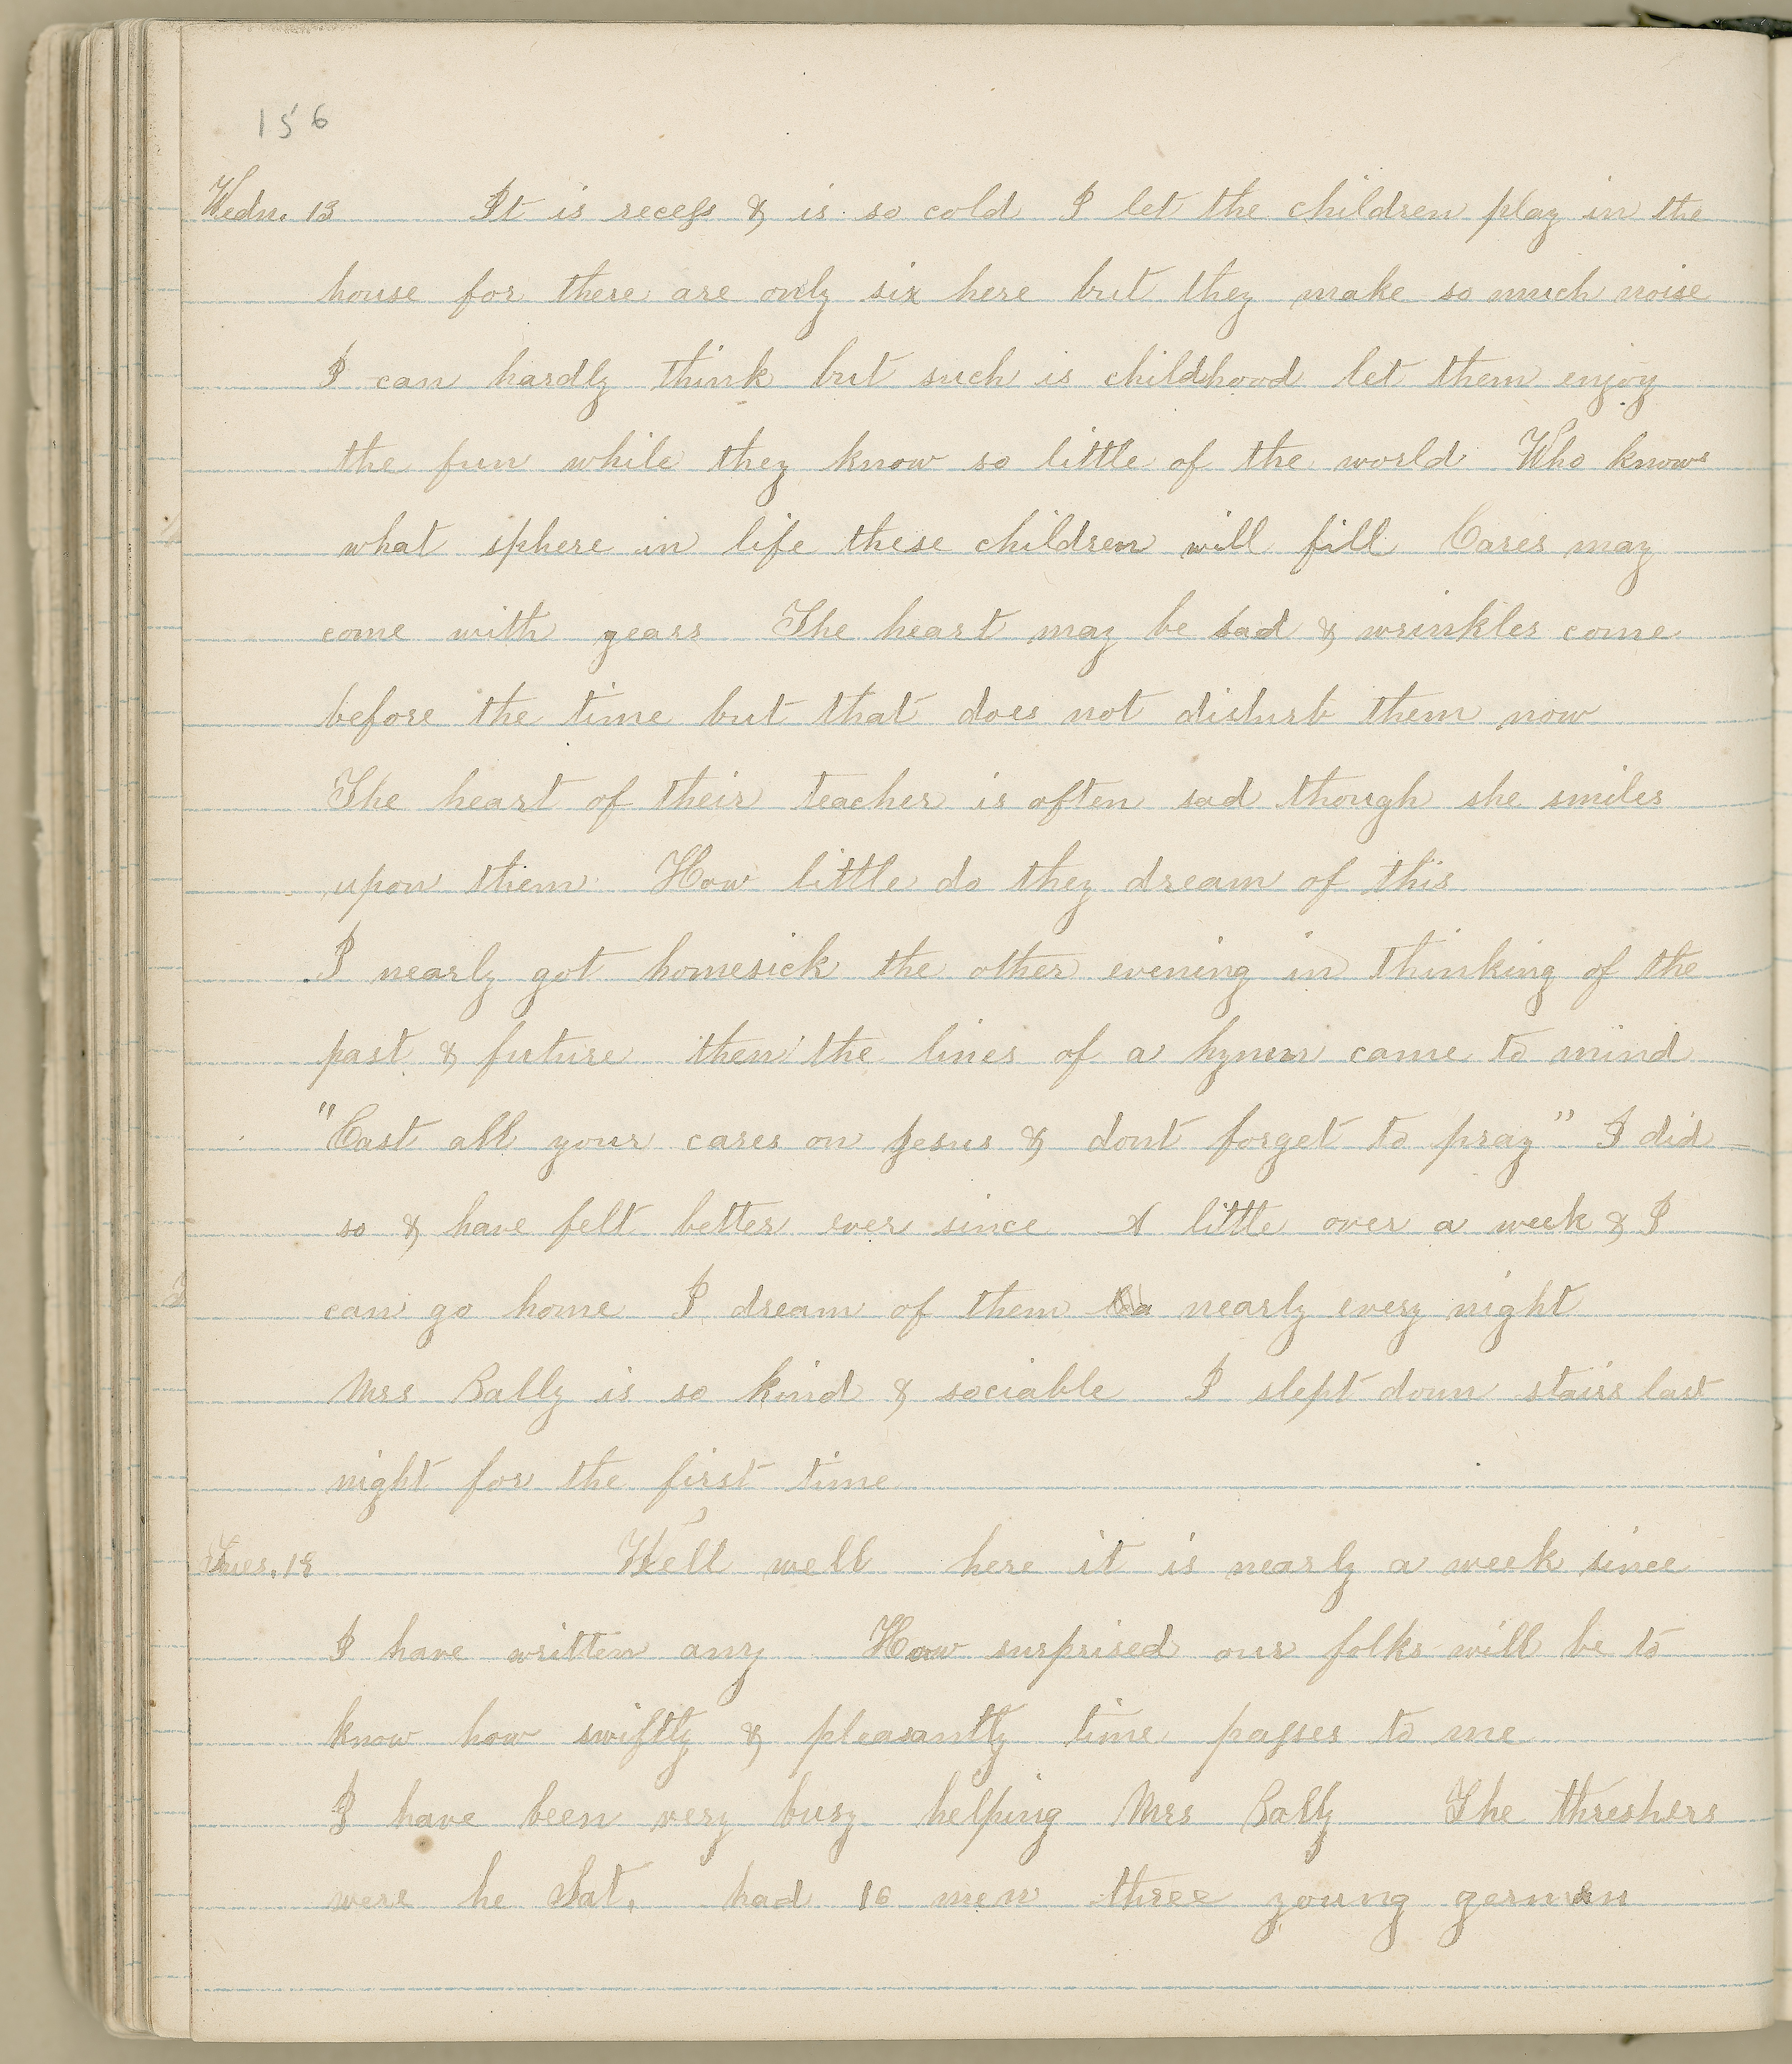 156
Wedn. 13 It is recess & is so cold I let the children play in the
house for there are only six here but they make so much noise
I can hardly think but such is childhood let them enjoy
the fun while they know so little of the world Who knows
what sphere in life these children will fill Cares may
come with years The heart may be sad & wrinkles come
before the time but that does not disturb them now
The heart of their teacher is often sad though she smiles
upon them How little do they dream of this
I nearly got homesick the other evening in thinking of the
past & future then the lines of a hymn came to mind
"Cast all your cares on Jesus & dont forget to pray" I did
so & have felt better ever since A little over a week & I
can go home I dream of them nearly every night
Mrs Rally is so kind & sociable I slept down stairs last
night for the first time
Tues. 19 Well well here it is nearly a week since
I have written any How surprised our folks will be to
know how swiftly & pleasantly time passes to me
I have been very busy helping Mrs Rally The threshers
were he Sat. had 16 men three young german